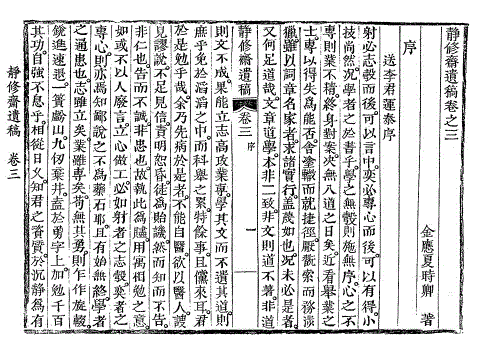 靜修齋遺稿卷之三
金應夏時卿 著
序
送李君運泰序
射必志彀而後可以言中奕必專心而後可以有得小
技尚然況學者之於普乎學之無彀則施無序心之不
專則業不精終身對案決無入道之日矣近看舉業之
士專以得失爲能否舍塗轍而就捷徑厭觀索而務涉
獵雖以詞章名家者求諸實行蓋蔑如也況未必是者
又何足道哉文章道學本非二致非文則道不著非道
靜修齋遺稿 卷三 序 一
則文不成果能立志高攻業專學其文而不遺其道則
庶乎免於滔滔之中而科舉之累特餘事且儻來耳君
於是勉乎哉余乃先病於是者不能自醫欲以醫人謏
見謬說不足見信責明恕昏徒爲貽譏然而知而不告
非仁也告而不誠非忠也故執此爲贐用寓相勉之意
如或不以人廢言立心做工必如射者之志彀奕者之
專心則亦爲知鄙說之不爲藥石耶且有始無終學者
之通患也志雖立矣業雖專矣苟無其勇則乍作旋輟
銳進速退一簣虧山九仞棄井盍於勇字上加勉千百
其功自強不息乎相從日久知君之資質於沉靜爲有
靜修齋遺稿 卷三